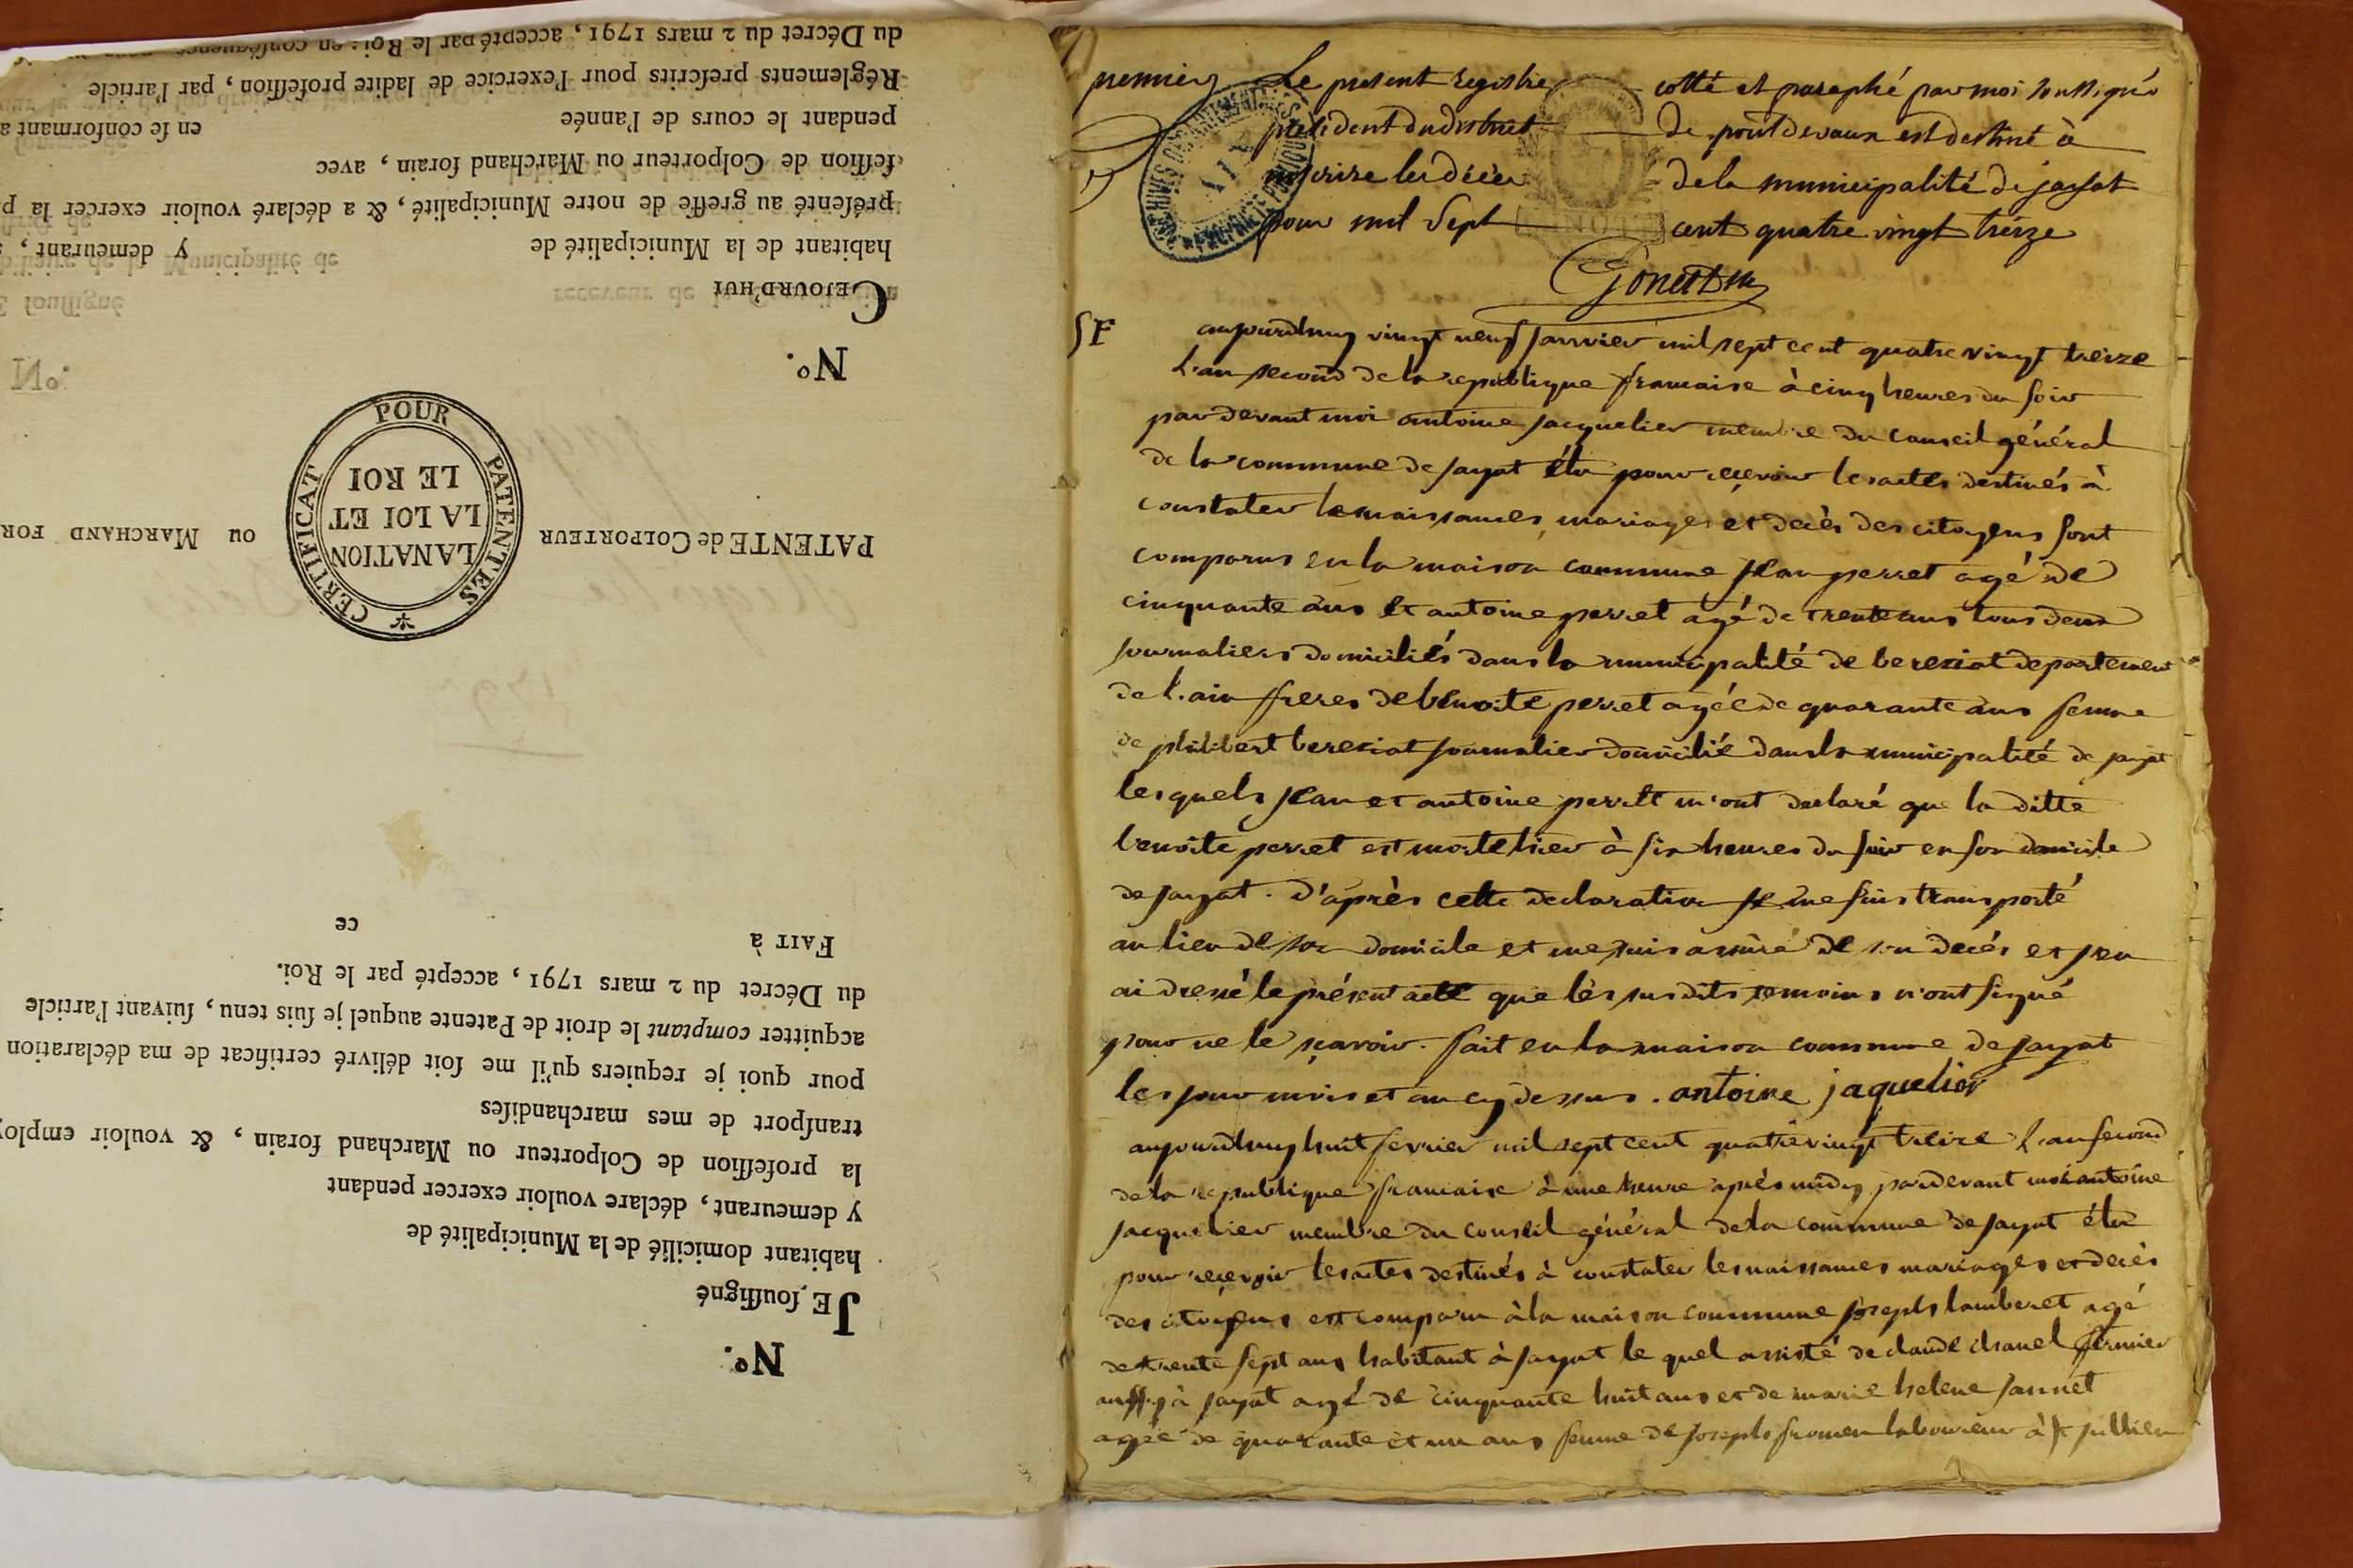 No.
JE, souſſigné
habitant domicilié de la Municipalité de
y demeurant, déclare vouloir exercer pendant
la profeſſion de Colporteur ou Marchand forain, & vouloir employ
tranſport de mes marchandiſes
pour quoi je requiers qu'il me ſoit délivré certificat de ma déclaration
acquitter comptant le droit de Patente auquel je ſuis tenu, ſuivant l'article
du Décret du 2 mars 1791, accepté par le Roi.
FAIT à ce
PATENTE de COLPORTEUR OU MARCHAND FOR
CERTIFICAT POUR PATENTES
LA NATION
LA LOI ET
LE ROI
No.
No.
CEJOURD'HUI
habitant de la Municipalité de y demeurant,
préſenté au greffe de notre Municipalité, & a déclaré vouloir exercer la p
feſſion de Colporteur ou Marchand forain, avec
pendant le cours de l'année en ſe conformant a
Réglements preſcrits pour l'exercice de ladite profeſſion, par l'article
du Décret du 2 mars 1791, accepté par le Roi: en conſéquence
premier Le present registre cotté et paraphé par moi soussigné
president du district de pontdevaux est destiné à
inscrire les décès de la municipalité de jayat
pour mil sept cent quatre vingt treize
SF
aujourdhuy vingt neuf janvier mil sept cent quatre vingt treize
l'an second de la republique francaise à cinq heures du soir
par devant moi antoine jacquelier membre du conseil général
de la commune de jayat élu pour recevoir les actes destinés à
constater les naissances, mariages et decès des citoyens sont
comparus en la maison commune jean perret agé de
cinquante ans et antoine perret agé de trente ans tous deux
journaliers domiciliés dans la municipalité de bereziat departement
de l'ain freres de benoite perret agée de quarante ans femme
de philibert bereziat journalier domicilié dans la municipalité de jayat
lesquels jean et antoine perret m'ont declaré que la ditte
benoite perret est morte hier à six heures du soir en son domicile
de jayat. d'après cette declaration je me suis transporté
au lieu de son domicile et me suis assuré de son decés et jen
ai dressé le présent acte que les susdits temoins n'ont signé
pour ne le sçavoir. fait en la maison commune de jayat
les jour mois et an cy dessus. antoine jaquelior
aujourdhuy huit fevrier mil sept cent quatre vingt treize l'an second
de la republique francaise à une heure après midy pardevant moi antoine
jacquelier membre du conseil général de la commune de jayat élu
pour reçevoir les actes destinés à constater les naissances mariages et decès
des citoyens est comparu à la maison commune joseph lamberet agé
de trente sept ans habitant à jayat le quel assisté de claude chanel fermier
aussy à jayat agé de cinquante huit ans et de marie helene jannet
agée de quarante et un ans femme de joseph laboureur à st jullien